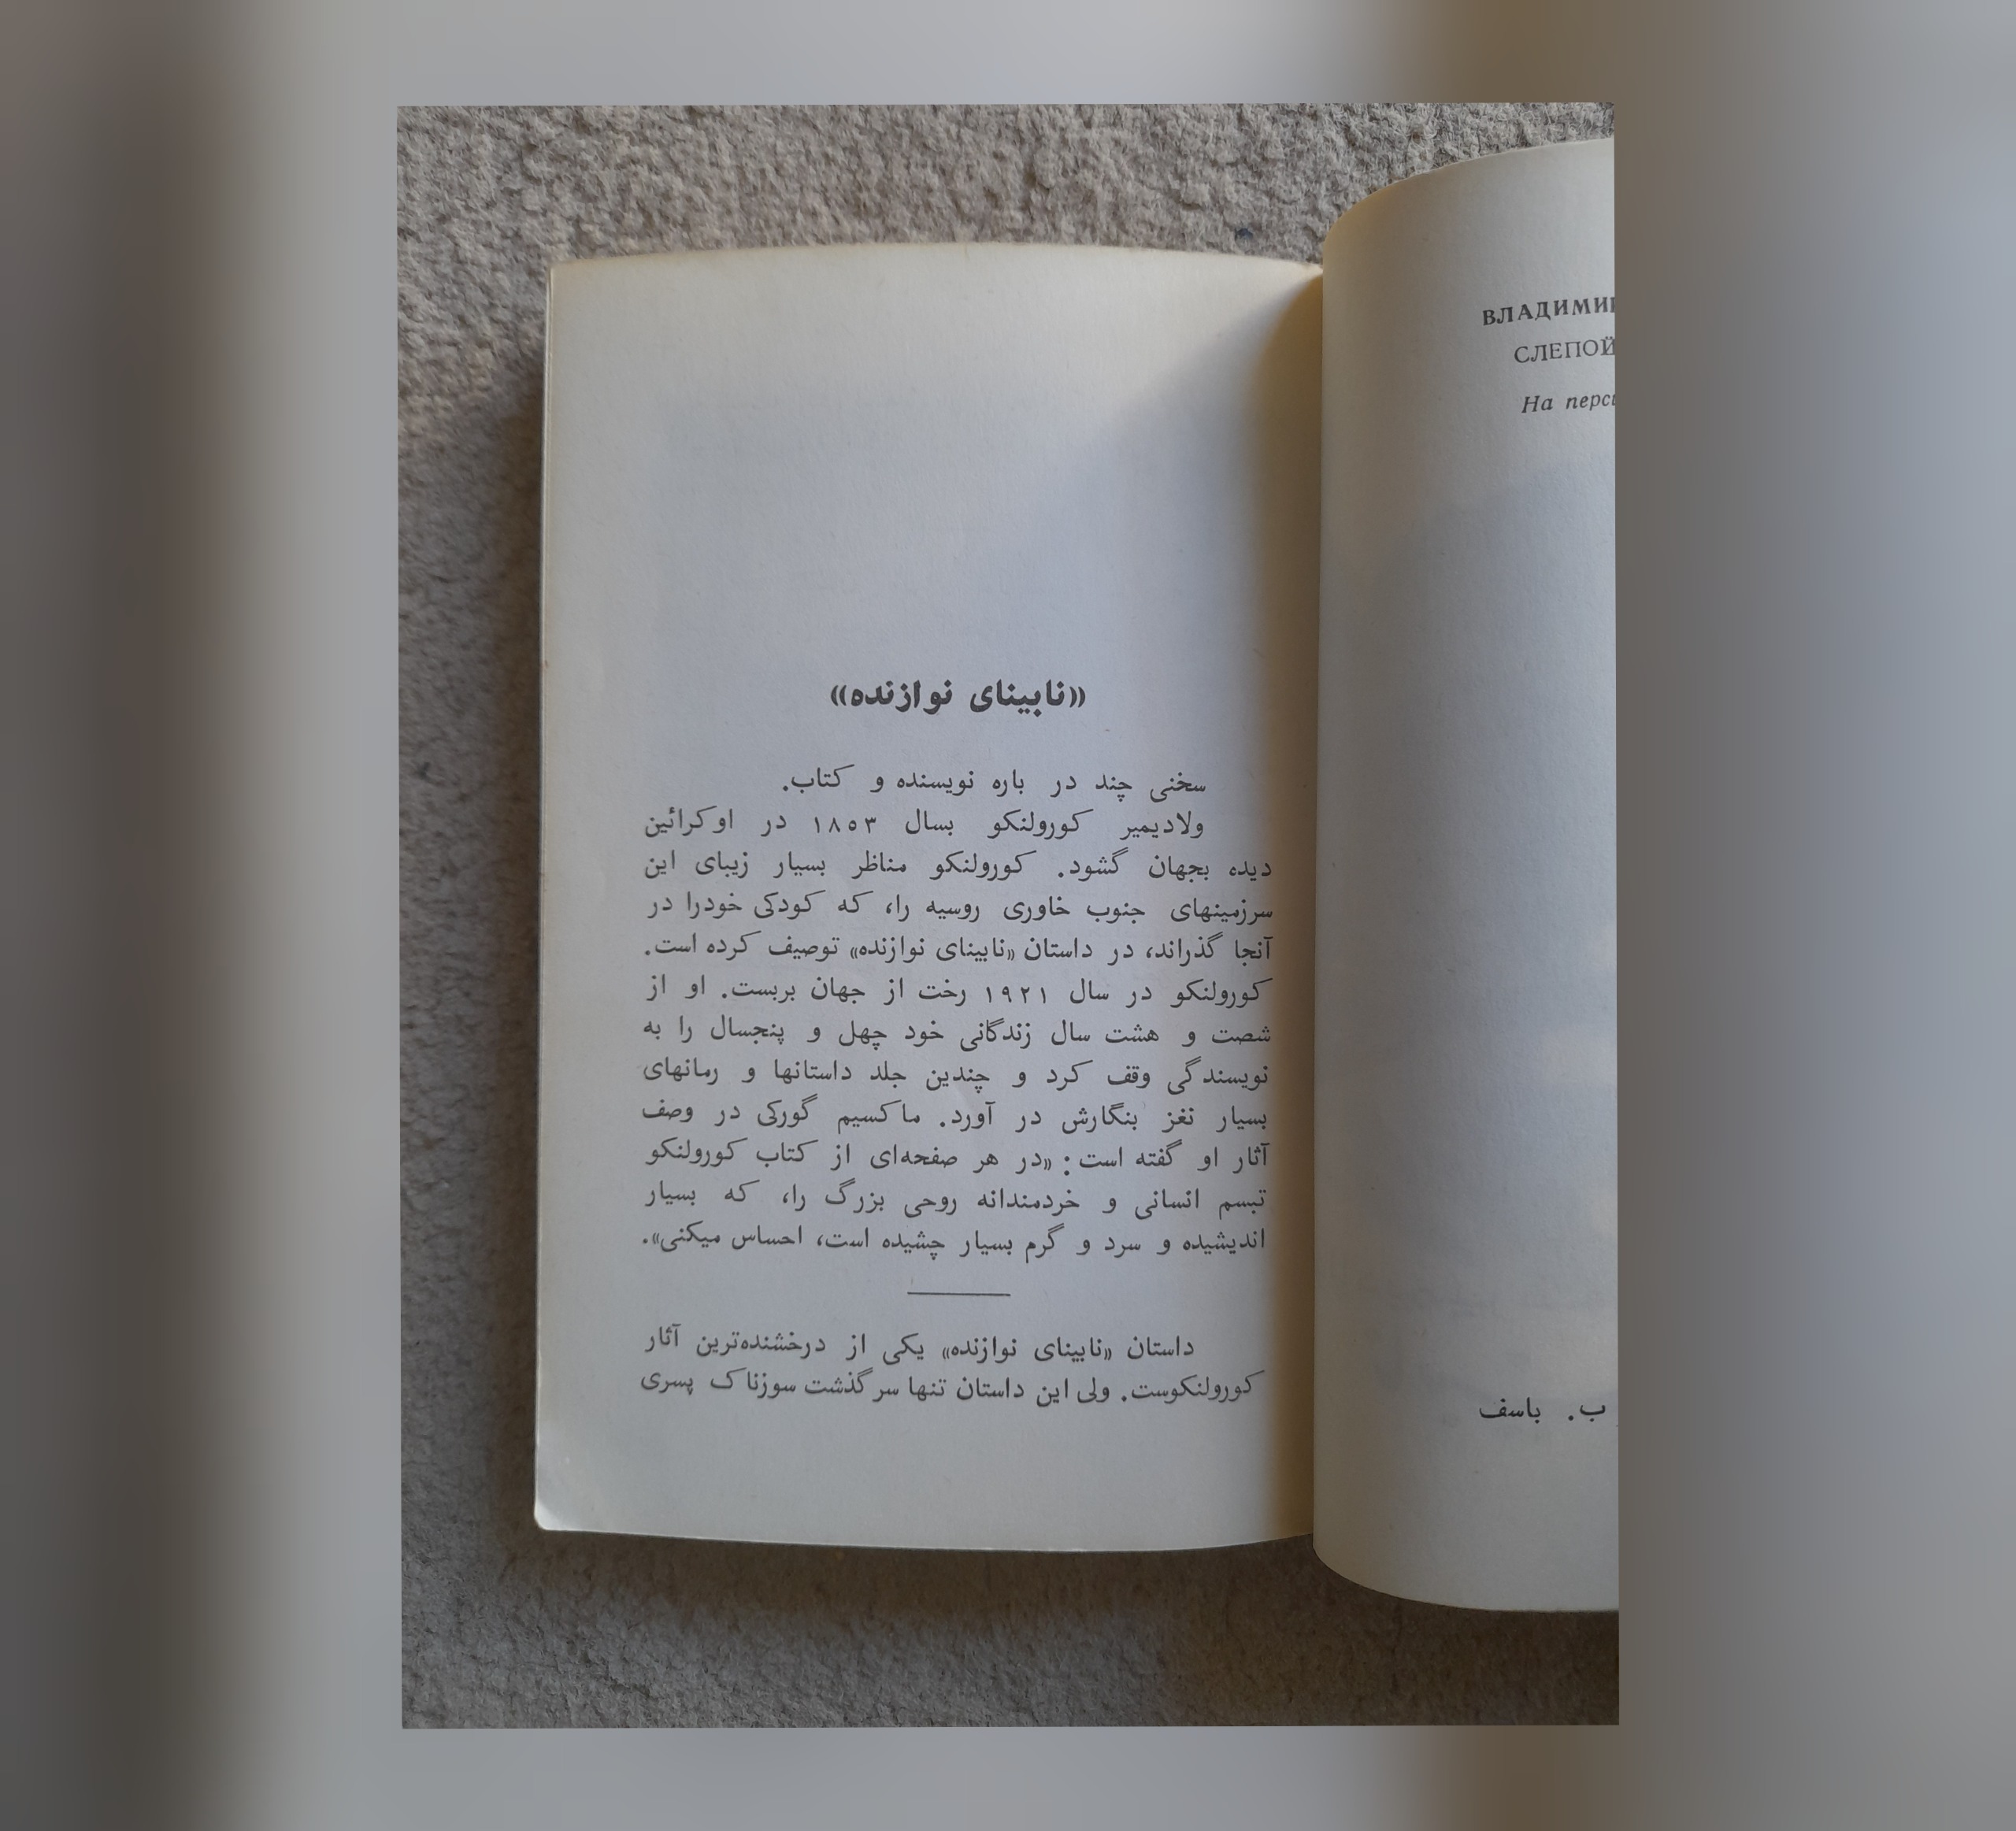 «نابینای نوازنده»
سخنی چند در باره نویسنده و کتاب.
ولادیمیر کورولنکو بسال ۱۸۵۳ در اوکرائین
دیده بجهان گشود. کورولنکو مناظر بسیار زیبای این
سرزمینهای جنوب خاوری روسیه را، که کودکی خودرا در
آنجا گذراند، در داستان «نابینای نوازنده» توصیف کرده است.
کورولنکو در سال ۱۹۲۱ رخت از جهان بربست. او از
شصت و هشت سال زندگانی خود چهل و پنجسال را به
نویسندگی وقف کرد و چندین جلد داستانها و رمانهای
بسیار نغز بنگارش در آورد. ماکسیم گورکی در وصف
آثار او گفته است: «در هر صفحه‌ای از کتاب کورولنکو
تبسم انسانی و خردمندانه روحی بزرگ را، که بسیار
اندیشیده و سرد و گرم بسیار چشیده است، احساس میکنی».
داستان «نابینای نوازنده» یکی از درخشنده‌ترین آثار
کورولنکوست. ولی این داستان تنها سرگذشت سوزناک پسری
ВЛАДИМИ
СЛЕПОЙ
На перс
ب. باسف